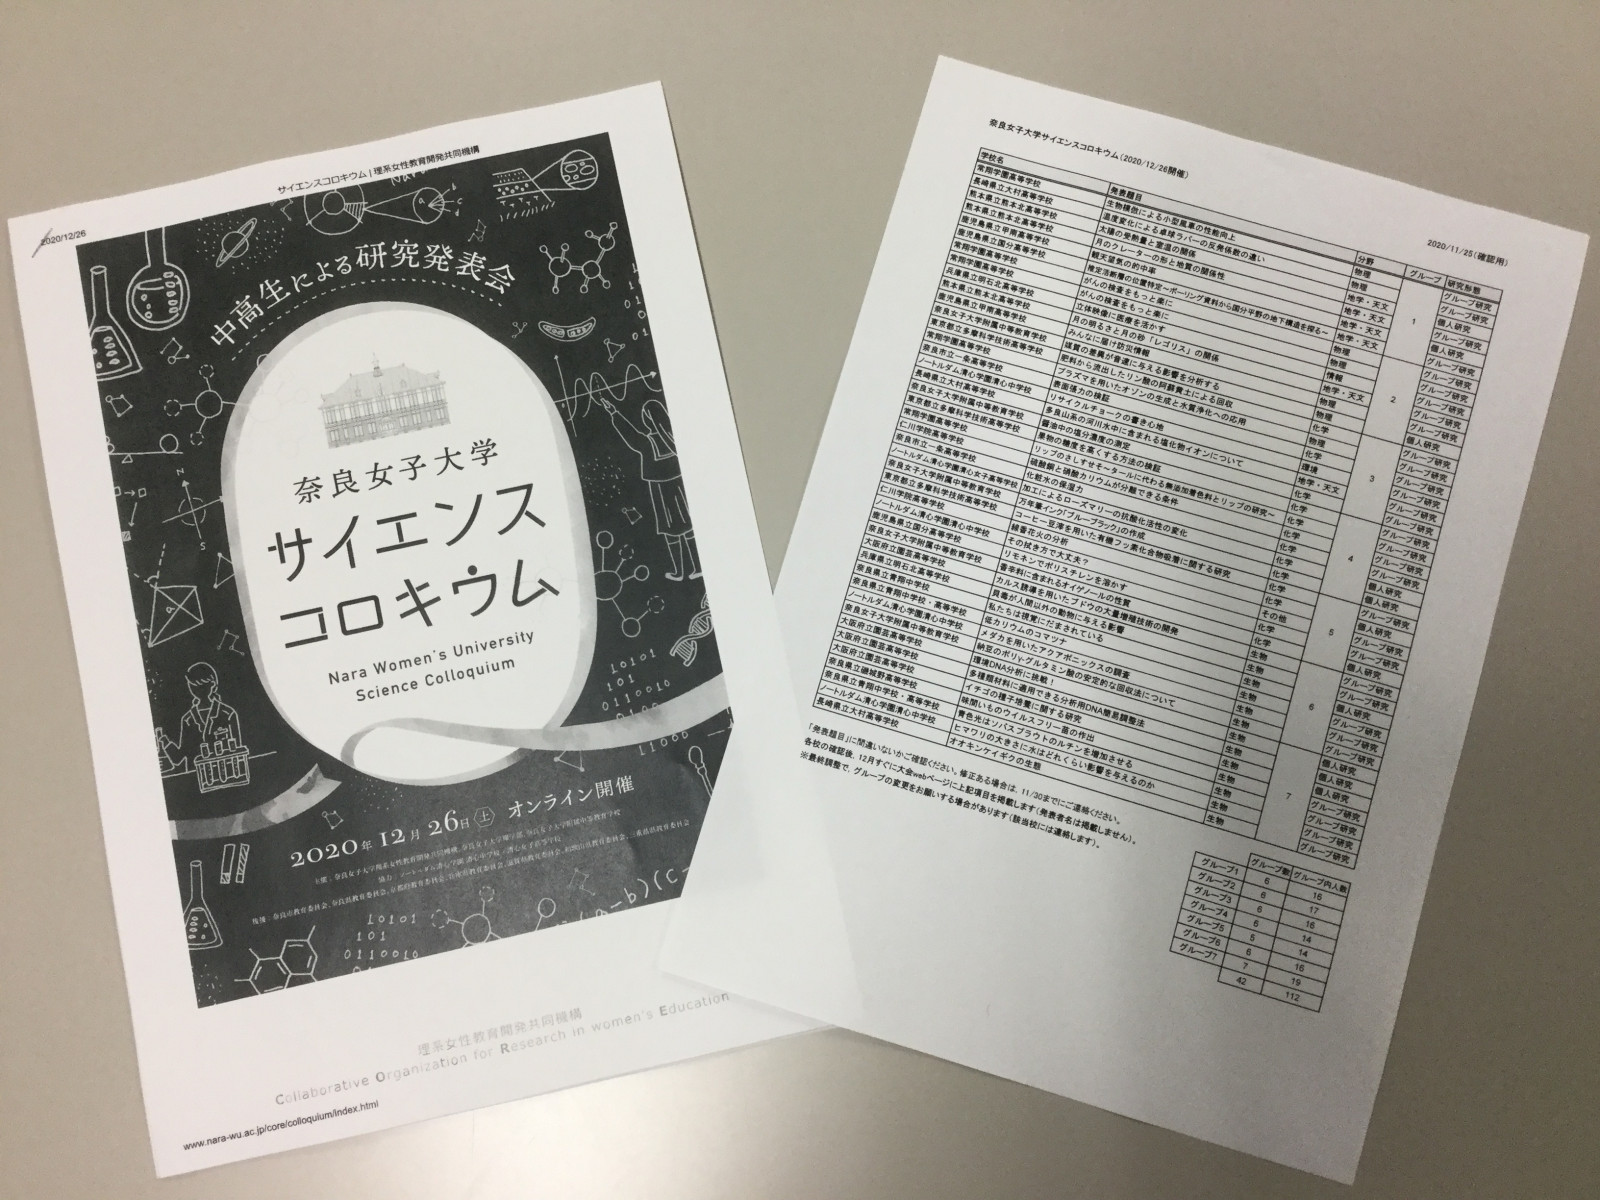 2020/12/26
サイエンスコロキウム | 理系女性教育開発共同機構
中高生による研究発表会
奈良女子大学
サイエンス
コロキウム
Nara Women's University
Science Colloquium
2020年 12月 26日 (土) オンライン開催
10101
101
0110010
理系女性教育開発共同機構
Collaborative Organization for Research in women's Education
www.nara-wu.ac.jp/core/colloquium/index.html
奈良女子大学サイエンスコロキウム(2020/12/26開催)
2020/11/25(確認用)
学校名 発表題目 分野 グループ 研究形態
常翔学園高等学校 生物模倣による小型風車の性能向上 物理 グループ研究
長崎県立大村高等学校 温度変化による卓球ラバーの反発係数の違い 物理 グループ研究
熊本県立熊本北高等学校 太陽の受熱量と室温の関係 地学・天文
熊本県立熊本北高等学校 月のクレーターの形と地質の関係性 地学・天文
鹿児島県立甲南高等学校 観天望気の的中率 地学・天文
鹿児島県立国分高等学校 推定活断層の位置特定～ボーリング資料から国分平野の地下構造を探る～ 地学・天文
常翔学園高等学校 がんの検査をもっと楽に 物理
常翔学園高等学校 がんの検査をもっと楽に
兵庫県立明石北高等学校 立体映像に医療を活かす
熊本県立熊本北高等学校 月の明るさと月の砂「レゴリス」の関係
鹿児島県立甲南高等学校 みんなに届け防災情報
奈良女子大学附属中等教育学校 媒質の差異が音速に与える影響を分析する
東京都立多摩科学技術高等学校 肥料から流出したリン酸の阿蘇黄土による回収
常翔学園高等学校 プラズマを用いたオゾンの生成と水質浄化への応用
奈良市立一条高等学校 表面張力の検証
ノートルダム清心学園清心中学校 リサイクルチョークの書き心地
長崎県立大村高等学校 多良山系の河川水中に含まれる塩化物イオンについて
奈良女子大学附属中等教育学校 醤油中の塩分濃度の測定
東京都立多摩科学技術高等学校 果物の糖度を高くする方法の検証
常翔学園高等学校 リップのさしすせそ～タールに代わる無添加着色料とリップの研究～
仁川学院高等学校 硫酸銅と硝酸カリウムが分離できる条件
奈良市立一条高等学校 化粧水の保湿力
ノートルダム清心学園清心女子高等学校 加工によるローズマリーの抗酸化活性の変化
奈良女子大学附属中等教育学校 万年筆インク「ブルーブラック」の作成
東京都立多摩科学技術高等学校 コーヒー豆滓を用いた有機フッ素化合物吸着に関する研究
仁川学院高等学校 線香花火の分析
ノートルダム清心学園清心中学校 その拭き方で大丈夫？
鹿児島県立国分高等学校 リモネンでポリスチレンを溶かす
奈良女子大学附属中等教育学校 香辛料に含まれるオイゲノールの性質
大阪府立園芸高等学校 カルス誘導を用いたブドウの大量増殖技術の開発
兵庫県立明石北高等学校 貝毒が人間以外の動物に与える影響
奈良県立青翔中学校 私たちは視覚にだまされている
奈良県立青翔中学校・高等学校 低カリウムのコマツナ
ノートルダム清心学園清心中学校 メダカを用いたアクアポニックスの調査
奈良女子大学附属中等教育学校 納豆のポリγ-グルタミン酸の安定的な回収法について
大阪府立園芸高等学校 環境DNA分析に挑戦！
大阪府立園芸高等学校 多種類材料に適用できる分析用DNA簡易調整法
大阪府立園芸高等学校 イチゴの種子培養に関する研究
奈良県立磯城野高等学校 味間いものウイルスフリー苗の作出
奈良県立青翔中学校・高等学校 青色光はソバスプラウトのルチンを増加させる
ノートルダム清心学園清心中学校 ヒマワリの大きさに水はどれくらい影響を与えるのか
長崎県立大村高等学校 オオキンケイギクの生態 生物 グループ研究
「発表題目」に間違いないかご確認ください。修正ある場合は、11/30までにご連絡ください。
各校の確認後、12月すぐに大会webページに上記項目を掲載します(発表者名は掲載しません)。
※最終調整で、グループの変更をお願いする場合があります(該当校には連絡します)。
グループ数 グループ内人数
グループ1 6 15
グループ2 6 17
グループ3 6 16
グループ4 6 14
グループ5 5 14
グループ6 6 16
グループ7 7 19
42 112